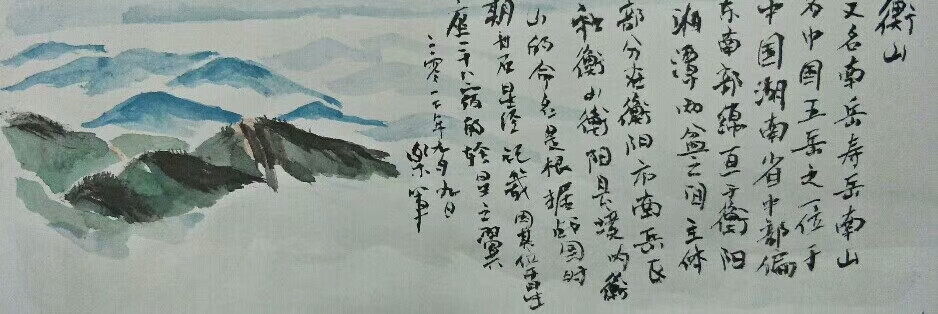 衡山
又名南岳寿岳南山
为中国五岳之一位于
中国湖南省中部偏
东南部绵亘于衡阳
湘潭两盆之间主体
部分在衡阳市南岳区
和衡山衡阳县境内衡
山的命名是根据战国时
期甘石星经记载因其位
座二十八宿的轸星之翼
二零一七年九月九日
乐军